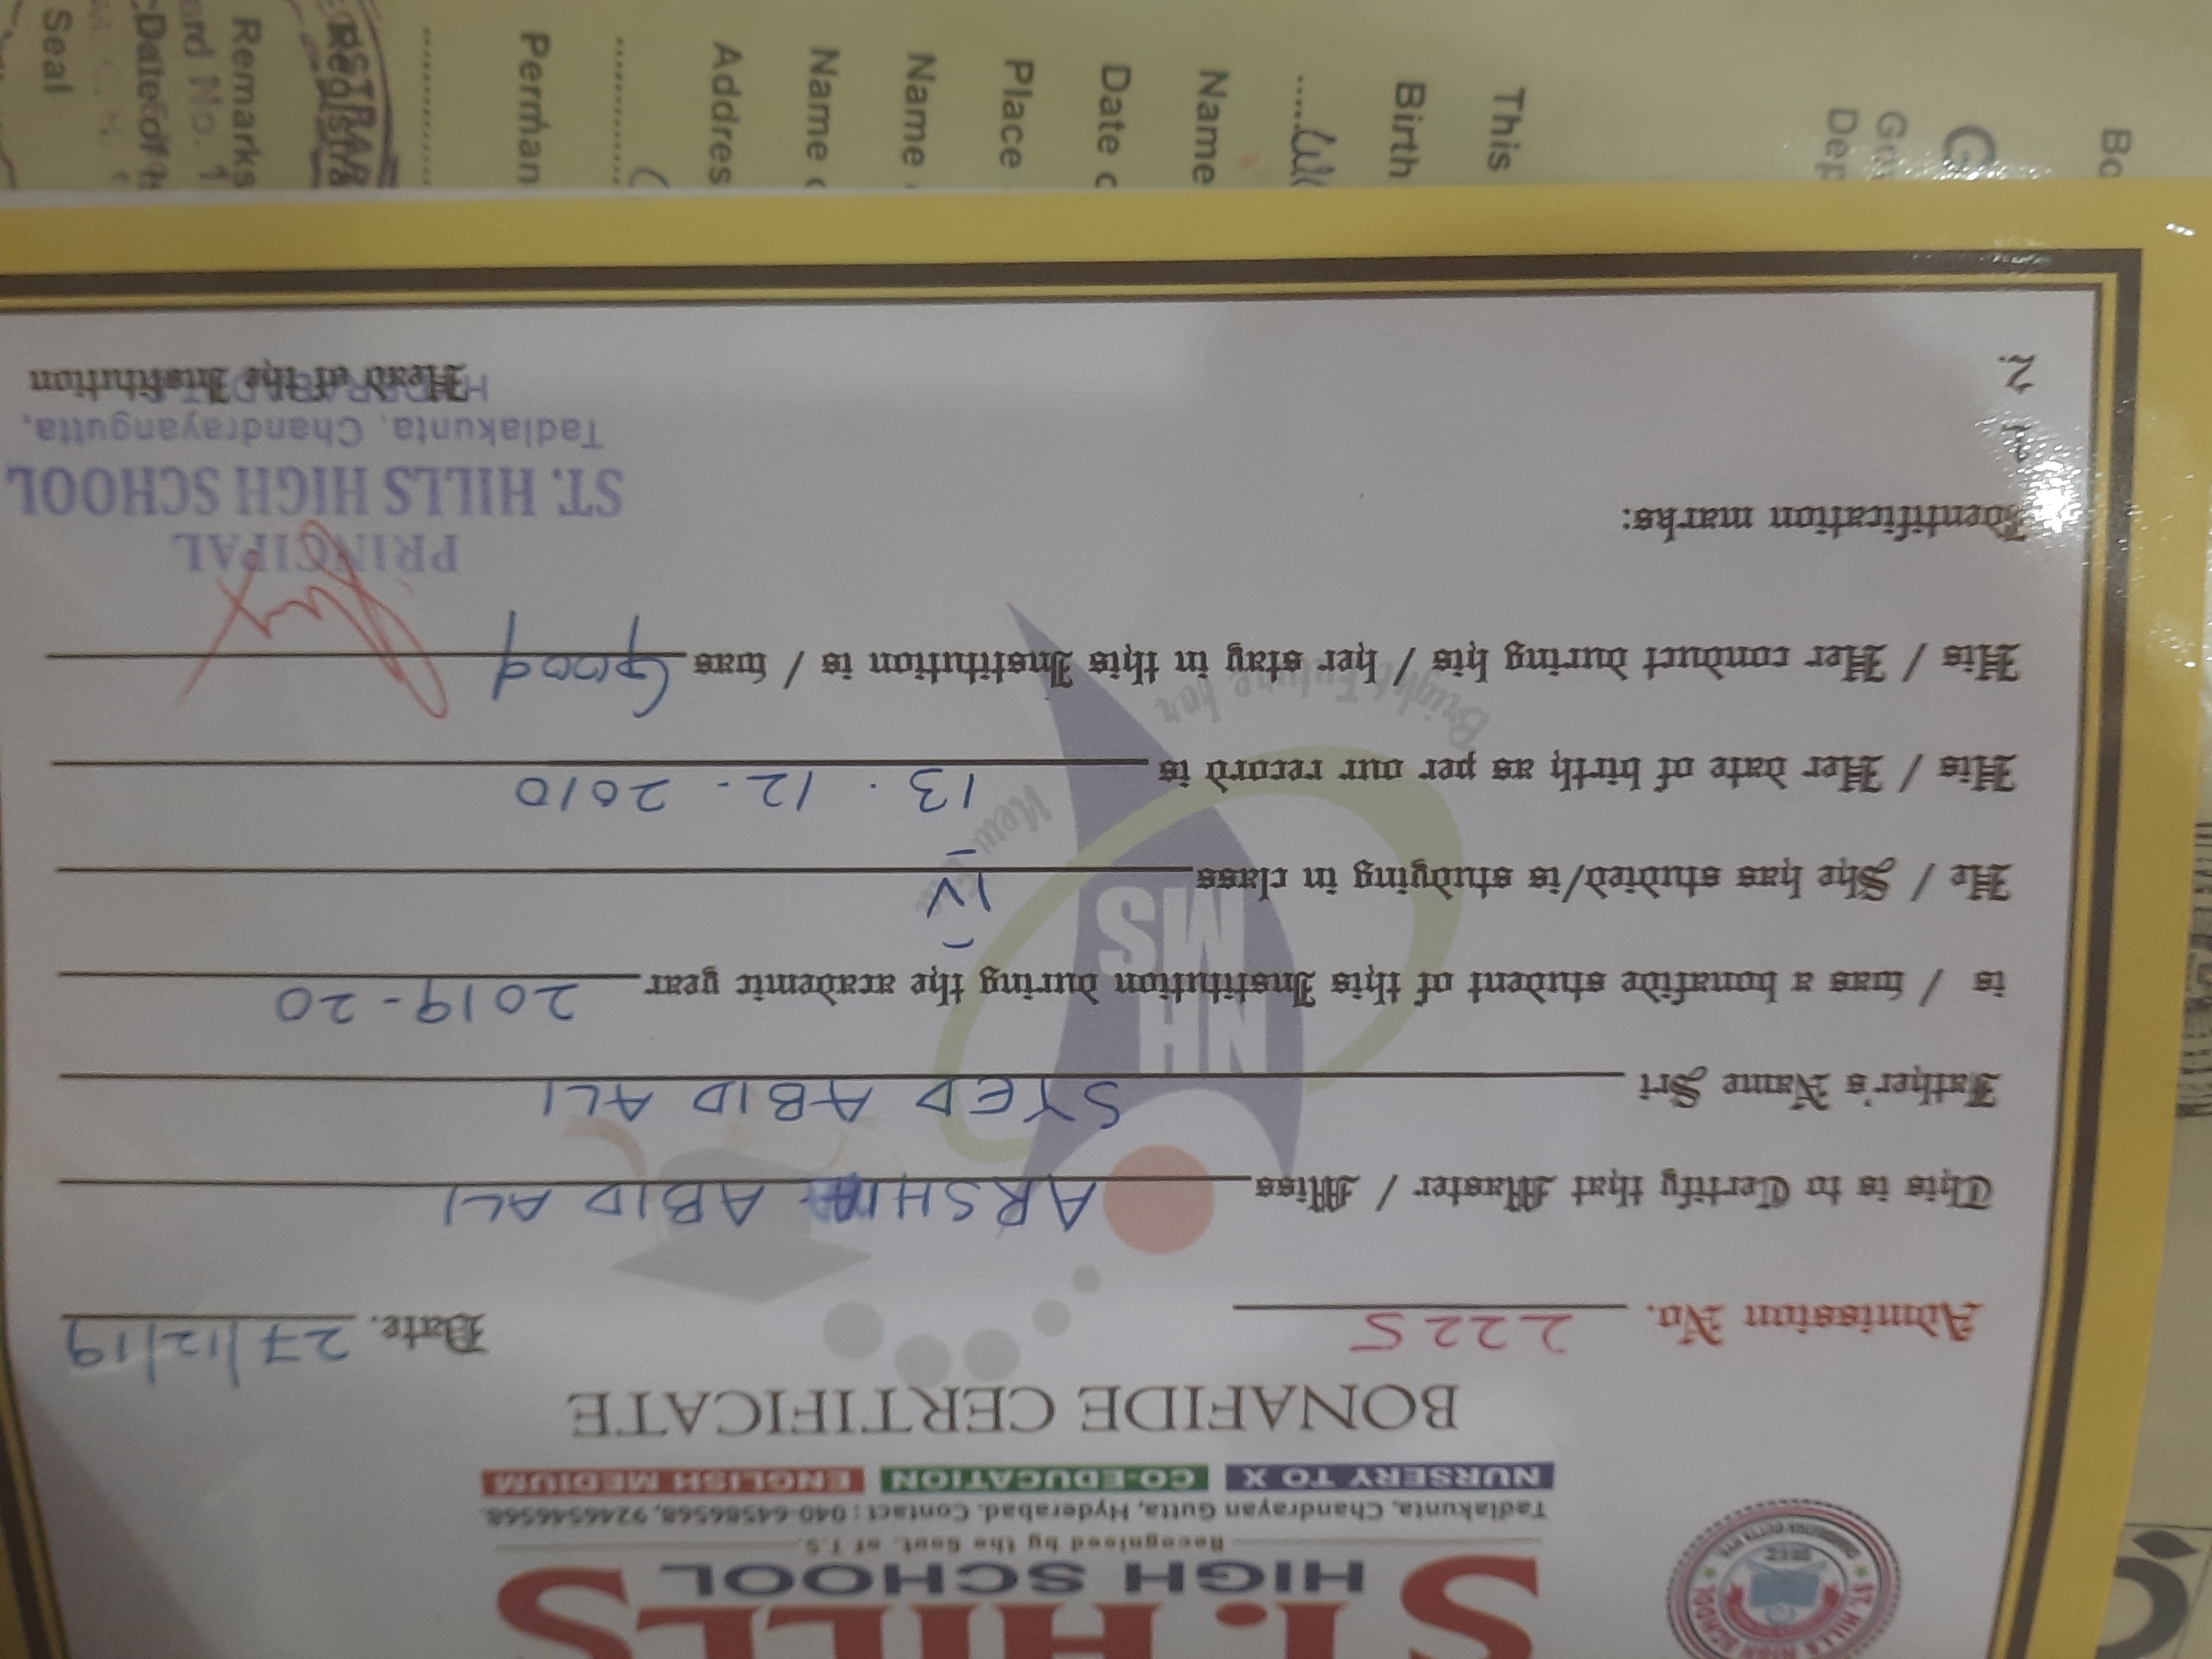 ST. HILLS
HIGH SCHOOL
Recognised by the Govt. of T.S.
Tadlakunta, Chandrayan Gutta, Hyderabad. Contact : 040-64586568, 9246546568.
NURSERY TO X CO-EDUCATION ENGLISH MEDIUM
BONAFIDE CERTIFICATE
Admission No. 2225 Date. 27/12/19
This is to Certify that Master / Miss ARSHIA ABID ALI
Father's Name Sri SYED ABID ALI
is / was a bonafide student of this Institution during the academic year 2019-20
He / She has studied/is studying in class IV
His / Her date of birth as per our record is 13. 12-2010
His / Her conduct during his / her stay in this Institution is / was Good
Identification marks:
1.
2.
PRINCIPAL
ST. HILLS HIGH SCHOOL
Tadlakunta, Chandrayangutta,
Head of the Institution
NH
MS
New
Bright Future
ST. HILLS HIGH SCHOOL
This
Birth
Name
Date
Place
Name
Name
Addres
Perman
Remarks
Seal